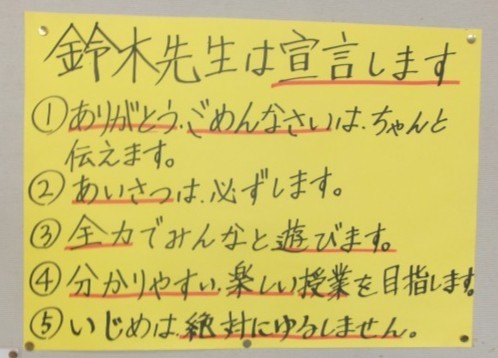 鈴木先生は宣言します
①ありがとう、ごめんなさいは、ちゃんと
伝えます。
②あいさつは、必ずします。
③全力でみんなと遊びます。
④分かりやすい、楽しい授業を目指します。
⑤いじめは、絶対にゆるしません。